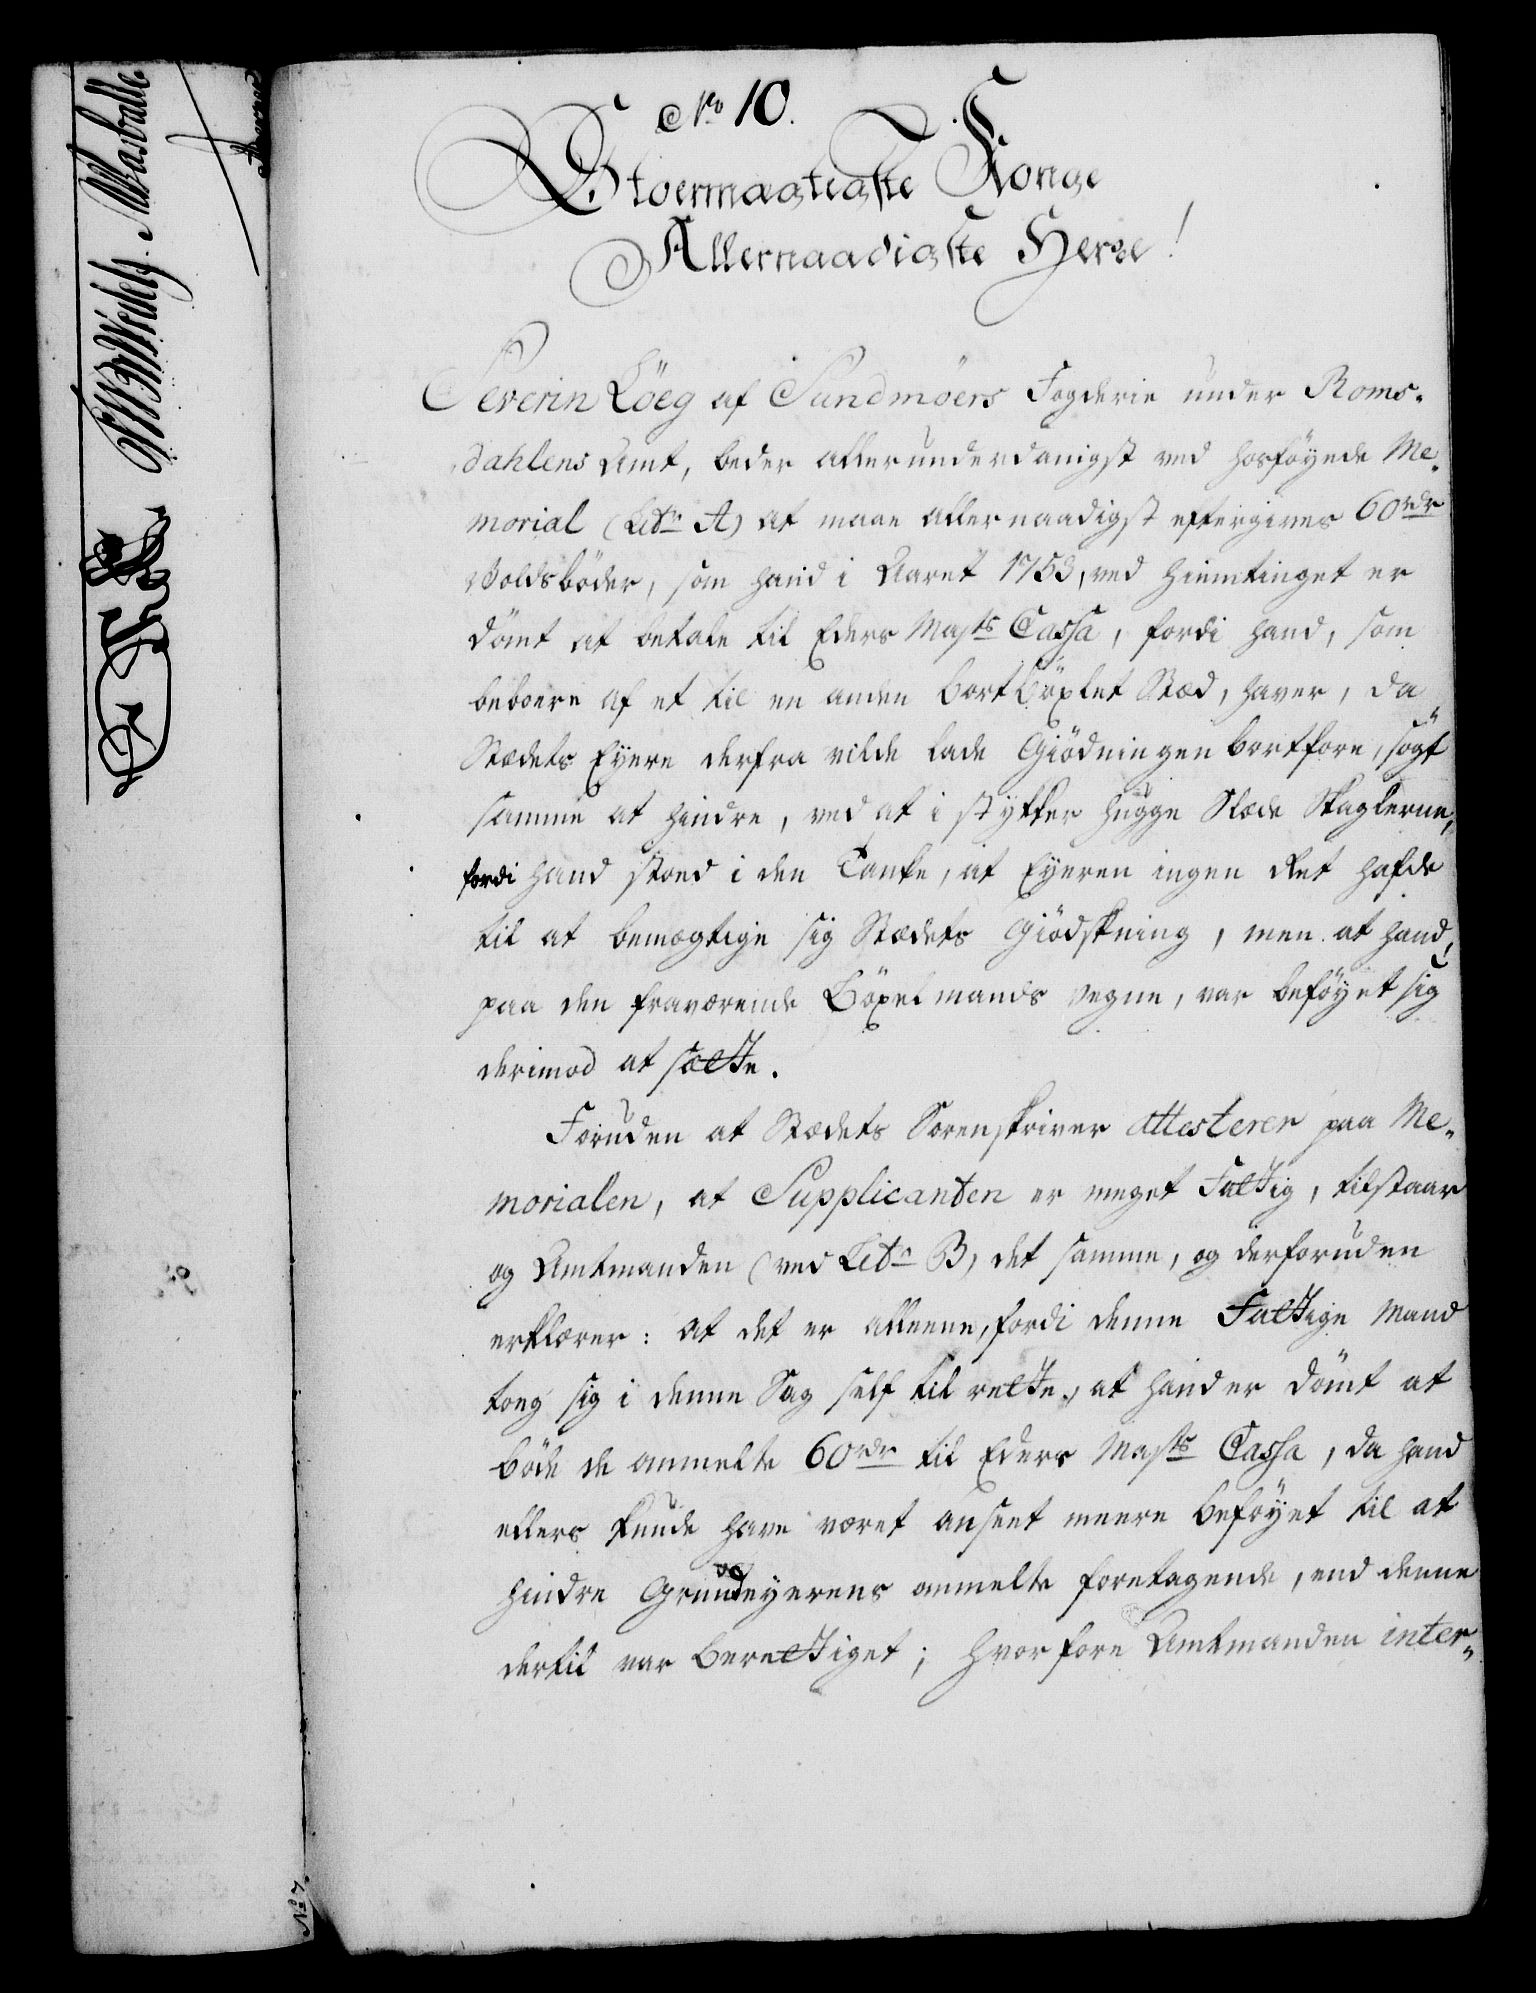 No 10.
Stoermægtigste Konge
Allernaadigste Herre!
Severin Löeg af Sundmöers Fogderie under Roms-
dahlens Amt, beder allerunderdanigst ved hosföyede Me-
morial (Litr A) at maae allernaadigst eftergives 60 rdr
Voldsböder, som hand i Aaret 1753, ved Hiemtinget er
dömt at betale til Eders Majts Cassa, fordi hand, som
beboere af et til en anden bortböxlet Stæd, haver, da
Stædets Eyere derfra vilde lade Giödningen bortföre, sögt
samme at hindre, ved at i stykker hugge Slæde Skaglerne,
fordi hand stoed i den Tanke, at Eyeren ingen Ret hafde
til at bemægtige sig Stædets Giödskning, men at hand,
paa den fraværende Böxelmands vegne, var beföyet sig
derimod at sætte.
Foruden at Stædets Sorenskriver attesterer paa Me-
morialen, at Supplicanten er meget Fattig, tilstaar
og Amtmanden (ved Litr B) det samme, og derforuden
erklærer: at det er alleene, fordi denne Fattige Mand
tog sig i denne Sag self til rette, at hand er dömt at
böde de anmelte 60 rdr til Eders Majts Cassa, da hand
ellers kunde have været anseet meere beföyet til at
hindre Grundeyerens anmelte foretagende, end denne
dertil var berettiget; hvorfore Amtmanden inter-
No 7.